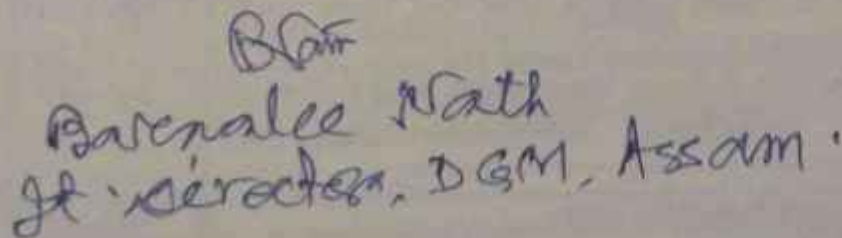 BNath
Barenalee Nath
Jt. Director, DGM, Assam.